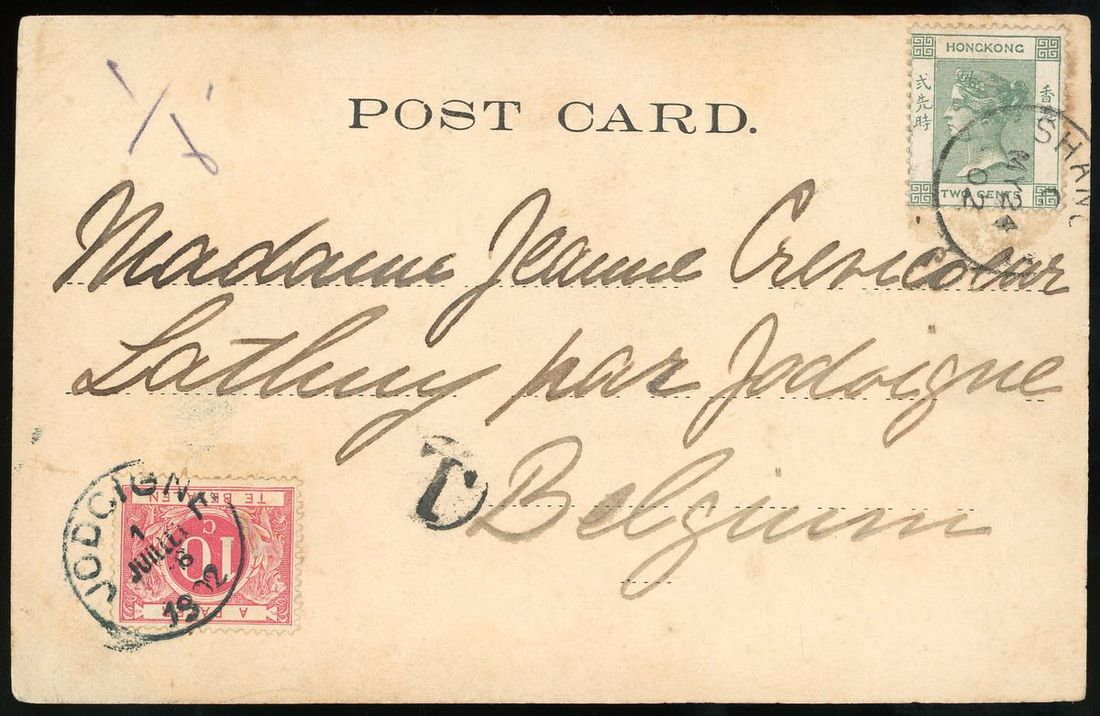 POST CARD.
HONGKONG
弍先時
香
TWO CENTS
SHANG
MY 24
02
Madame Jeanne Crevicoeur
Lathuy par Jodoigne
Belgium
T
JODOIGNE
1
JUILLET
1902
TE BETALEN
10 C
A PAYER